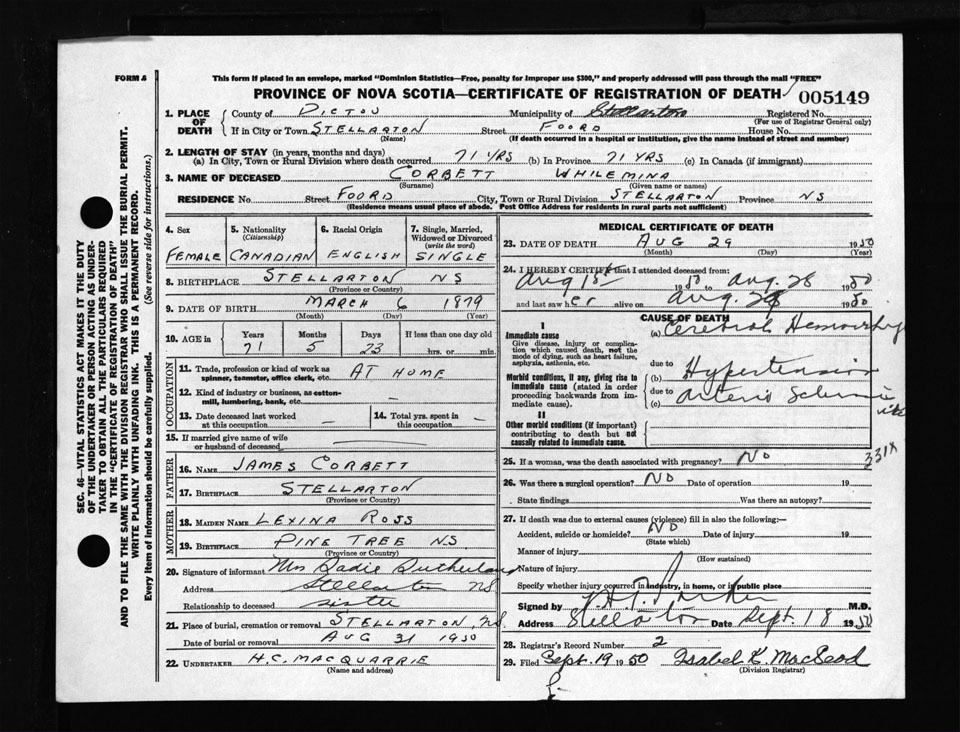 FORM 6
This form if placed in an envelope, marked "Dominion Statistics—Free, penalty for improper use $300," and properly addressed will pass through the mail "FREE"
PROVINCE OF NOVA SCOTIA—CERTIFICATE OF REGISTRATION OF DEATH
005149
1. PLACE OF DEATH County of PICTOU Municipality of Stellarton Registered No.
(For use of Registrar General only)
If in City or Town STELLARTON Street FOORD House No.
(Name) (If death occurred in a hospital or institution, give the name instead of street and number)
2. LENGTH OF STAY (in years, months and days)
(a) In City, Town or Rural Division where death occurred 71 YRS (b) In Province 71 YRS (c) In Canada (if immigrant)
3. NAME OF DECEASED CORBETT WHILEMINA
(Surname) (Given name or names)
RESIDENCE No. Street FOORD City, Town or Rural Division STELLARTON Province NS
(Residence means usual place of abode. Post Office Address for residents in rural parts not sufficient)
4. Sex
FEMALE
5. Nationality
(Citizenship)
CANADIAN
6. Racial Origin
ENGLISH
7. Single, Married, Widowed or Divorced
(write the word)
SINGLE
8. BIRTHPLACE STELLARTON NS
(Province or Country)
9. DATE OF BIRTH MARCH 6 1879
(Month) (Day) (Year)
10. AGE in Years Months Days If less than one day old
71 5 23 hrs. or min.
OCCUPATION
11. Trade, profession or kind of work as spinner, teamster, office clerk, etc. AT HOME
12. Kind of industry or business, as cotton-mill, lumbering, bank, etc. —
13. Date deceased last worked at this occupation —
14. Total yrs. spent in this occupation —
15. If married give name of wife or husband of deceased
FATHER
16. NAME JAMES CORBETT
17. BIRTHPLACE STELLARTON
(Province or Country)
MOTHER
18. MAIDEN NAME LEXINA ROSS
19. BIRTHPLACE PINE TREE N.S.
(Province or Country)
20. Signature of informant Mrs Sadie Sutherland
Address Stellarton NS
Relationship to deceased sister
21. Place of burial, cremation or removal STELLARTON, N.S.
Date of burial or removal AUG 31 1950
22. UNDERTAKER H.C. MACQUARRIE
(Name and address)
MEDICAL CERTIFICATE OF DEATH
23. DATE OF DEATH AUG 29 1950
(Month) (Day) (Year)
24. I HEREBY CERTIFY that I attended deceased from:
Aug 1st 1950 to Aug. 28 1950
and last saw her alive on Aug. 28 1950
CAUSE OF DEATH
I
Immediate cause
Give disease, injury or complication which caused death, not the mode of dying, such as heart failure, asphyxia, asthenia, etc.
(a) Cerebral Hemorrhag
due to
Morbid conditions, if any, giving rise to immediate cause (stated in order proceeding backwards from immediate cause).
(b) Hypertension
due to
(c) Arterio Sclerosis
II
Other morbid conditions (if important) contributing to death but not causally related to immediate cause.
25. If a woman, was the death associated with pregnancy? NO
331X
26. Was there a surgical operation? NO Date of operation 19
State findings Was there an autopsy?
27. If death was due to external causes (violence) fill in also the following:—
Accident, suicide or homicide? NO Date of injury 19
(State which)
Manner of injury
(How sustained)
Nature of injury
Specify whether injury occurred in industry, in home, or in public place
Signed by Parker M.D.
Address Stellarton Date Sept. 18 1950
28. Registrar's Record Number 2
29. Filed Sept. 19 1950 Isabel K. MacLeod
(Division Registrar)
SEC. 46—VITAL STATISTICS ACT MAKES IT THE DUTY
OF THE UNDERTAKER OR PERSON ACTING AS UNDER-
TAKER TO OBTAIN ALL THE PARTICULARS REQUIRED
IN THE "CERTIFICATE OF REGISTRATION OF DEATH"
AND TO FILE THE SAME WITH THE DIVISION REGISTRAR WHO SHALL ISSUE THE BURIAL PERMIT.
WRITE PLAINLY WITH UNFADING INK. THIS IS A PERMANENT RECORD.
Every item of information should be carefully supplied. (See reverse side for instructions.)